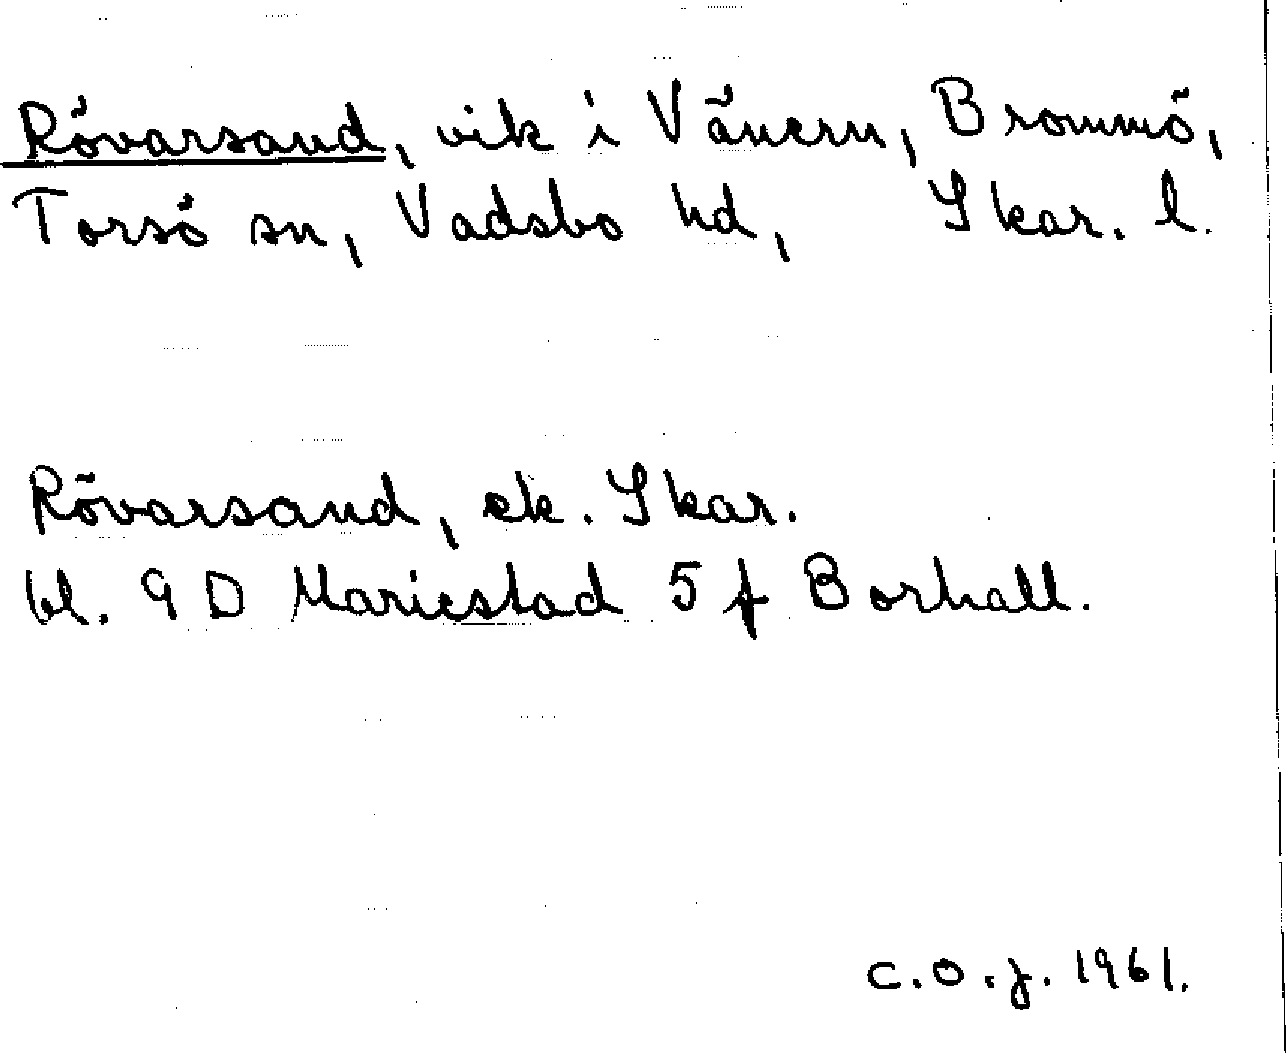 Rövarsand, vik i Vänern, Brommö,
Torsö sn, Vadsbo hd, Skar. l.
Rövarsand, ek. Skar.
bl. 9 D Mariestad 5 f Borhall.
C.O.J. 1961.